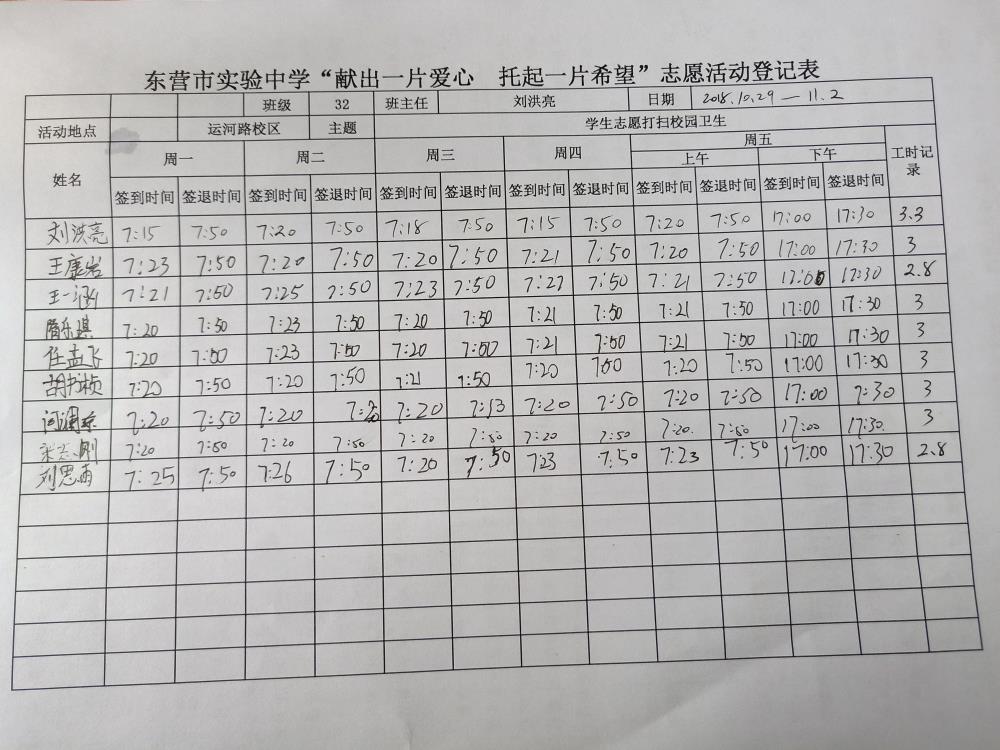 东营市实验中学“献出一片爱心 托起一片希望”志愿活动登记表
班级 32 班主任 刘洪亮 日期 2018.10.29 — 11.2
活动地点 运河路校区 主题 学生志愿打扫校园卫生
姓名 周一 周二 周三 周四 周五 工时记录
上午 下午
签到时间 签退时间 签到时间 签退时间 签到时间 签退时间 签到时间 签退时间 签到时间 签退时间 签到时间 签退时间
刘洪亮 7:15 7:50 7:20 7:50 7:18 7:50 7:15 7:50 7:20 7:50 17:00 17:30 3.3
王康岩 7:23 7:50 7:20 7:50 7:20 7:50 7:21 7:50 7:20 7:50 17:00 17:30 3
王一涵 7:21 7:50 7:25 7:50 7:23 7:50 7:27 7:50 7:21 7:50 17:00 17:30 2.8
7:20 7:50 7:23 7:50 7:20 7:50 7:21 7:50 7:21 7:50 17:00 17:30 3
任孟飞 7:20 7:50 7:23 7:50 7:20 7:50 7:21 7:50 7:21 7:50 17:00 17:30 3
胡书桢 7:20 7:50 7:20 7:50 7:21 7:50 7:20 7:50 7:20 7:50 17:00 17:30 3
7:20 7:50 7:20 7:20 7:53 7:20 7:50 7:20 7:50 17:00 7:30 3
7:20 7:50 7:20 7:50 7:20 7:50 7:20 7:50 7:20. 7:50 17:00 17:30. 3
刘思雨 7:25 7:50 7:26 7:50 7:20 7:50 7:23 7:50 7:23 7:50 17:00 17:30 2.8